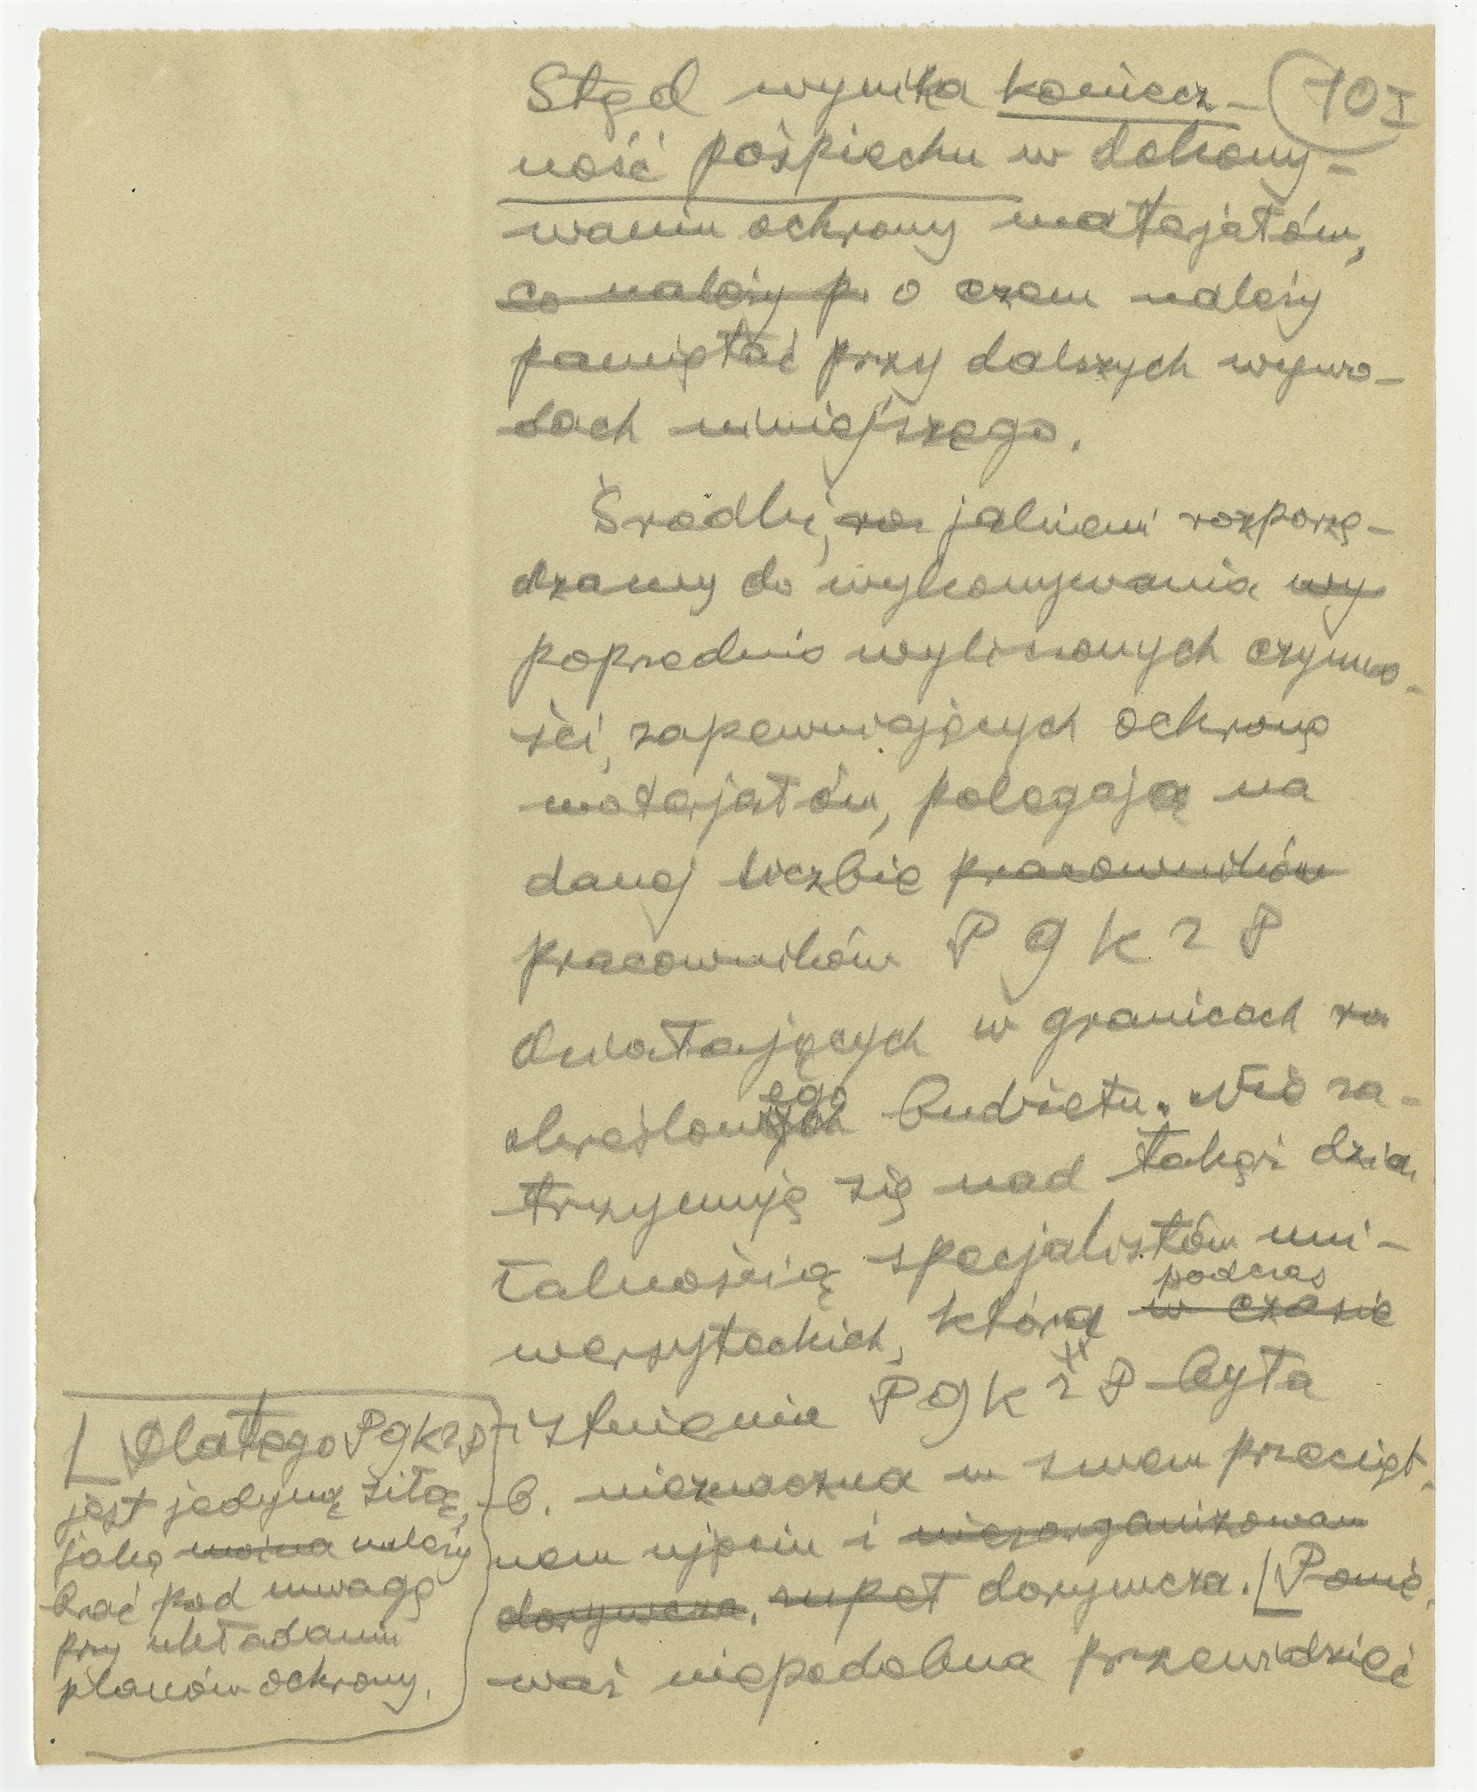 10 I
Stąd wynika koniecz-
ność pośpiechu w dokony-
waniu ochrony materjałów,
co należy p. o czem należy
pamiętać przy dalszych wywo-
dach niniejszego.
Środki, ro jakiemi rozporzą-
dzamy do wykonywania wy
poprzednio wyliczonych czynno-
ści, zapewniających ochronę
materjałów, polegają na
danej liczbie pracowników
pracowników P G K Z P
działających w granicach za
ego
określonych budżetu. Nie za-
trzymuję się nad takąż dzia
łalnością specjalistów uni-
podczas
wersyteckich, którą w czasie
istnienia P G K Z P była
b. nieznaczna w swem przecięt-
nem ujęciu i niezorganizowan
dorywcza, zupeł dorywcza. [Ponie-
waż niepodobna przewidzieć
[Dlatego PGKZP
jest jedyną siłą,
jaką można należy
brać pod uwagę
przy układaniu
planów ochrony.